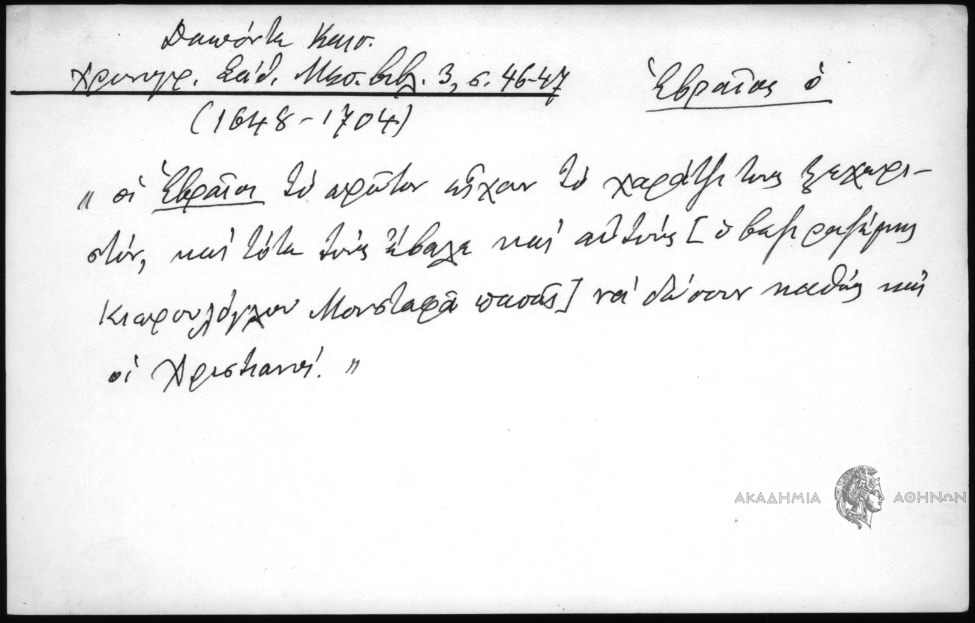 Δαπόντε Καισ.
Χρονογρ. Σάθ. Μεσ. βιβλ. 3, σ. 46-47
Ἑβραῖος ὁ
(1648-1704)
"οἱ Ἑβραῖοι τὸ πρῶτον εἶχαν τὸ χαράτζι τους ξεχωρι-
στόν, καὶ τότε τοὺς ἔβαλε καὶ αὐτοὺς [ὁ βεζιραζέμης
Κιοπρουλόγλου Μουσταφᾶ πασᾶς] νὰ δώσουν καθὼς καὶ
οἱ Χριστιανοί."
ΑΚΑΔΗΜΙΑ ΑΘΗΝΩΝ